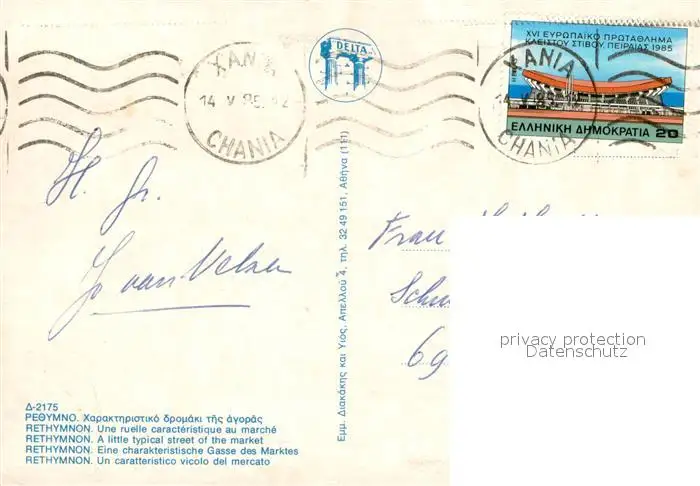 XANIA
14 V 85 12
CHANIA
DELTA
XVI ΕΥΡΩΠΑΙΚΟ ΠΡΩΤΑΘΛΗΜΑ
ΚΛΕΙΣΤΟΥ ΣΤΙΒΟΥ, ΠΕΙΡΑΙΑΣ 1985
ΕΛΛΗΝΙΚΗ ΔΗΜΟΚΡΑΤΙΑ 20
XANIA
CHANIA
H. Gr.
van Velsen
Frau
69
privacy protection
Datenschutz
Εμμ. Διακάκης και Υιός, Απελλού 4, τηλ. 32 49 151, Αθήνα (111)
Δ-2175
ΡΕΘΥΜΝΟ. Χαρακτηριστικό δρομάκι τῆς ἀγορᾶς
RETHYMNON. Une ruelle caractéristique au marché
RETHYMNON. A little typical street of the market
RETHYMNON. Eine charakteristische Gasse des Marktes
RETHYMNON. Un caratteristico vicolo del mercato